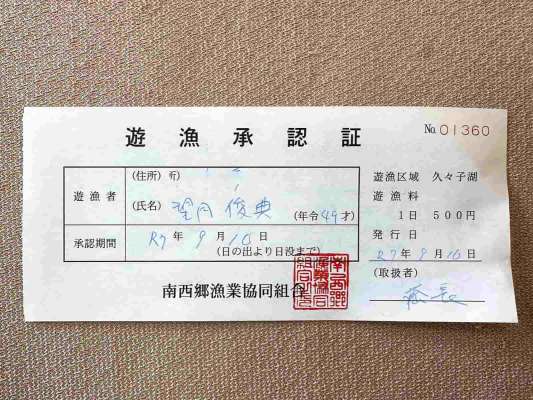 遊漁承認証
No 01360
遊漁者
(住所) 〒
(氏名) 望月 俊典
(年令49才)
承認期間
R7年 9月 10日
(日の出より日没まで)
南西郷漁業協同組合
遊漁区域 久々子湖
遊漁料
1日 500円
発行日
R7年 9月 10日
(取扱者)